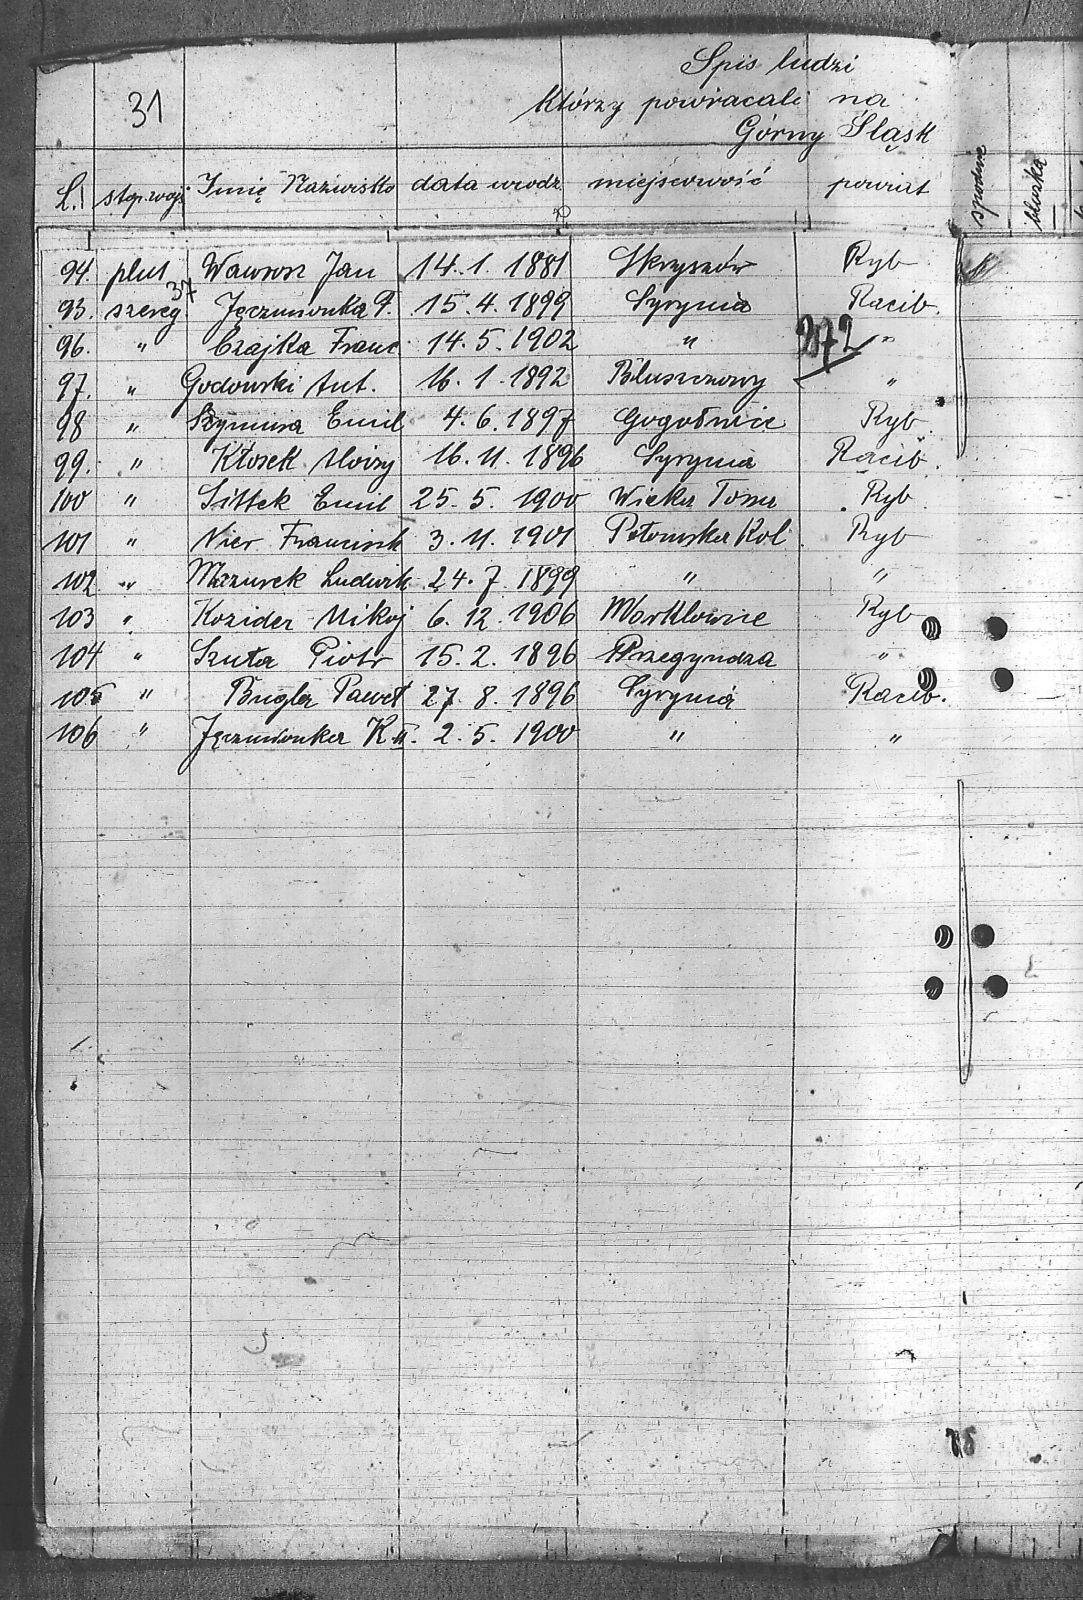 Spis ludzi
31
którzy powracali na
Górny Śląsk
L. stop. wojs. Imię Nazwisko data urodz. miejscowość powiat spodnie bluzka
94. plut Wawrosz Jan 14.1.1881 Skrzyszów Ryb
93. szereg. 37 Jęczmionka F. 15.4.1899 Syrynia Racib.
96. " Czajka Franc. 14.5.1902 " 272 "
97. " Godowski Ant. 16.1.1892 Bluszczowy "
98 " Szymura Emil 4.6.1897 Gogołowie Ryb.
99. " Kłosek Alojzy 16.11.1896 Syrynia Racib.
100 " Sittek Emil 25.5.1900 Ryb.
101 " Nier Francisek 3.11.1901 Połomska Kol. Ryb
102 " Mazurek Ludwik 24.7.1899 " "
103 " Kozider Mikoj 6.12.1906 Marklowie Ryb
104 " Szuła Piotr 15.2.1896 Przegyndza "
105 " Bugla Paweł 27.8.1896 Syrynia Racib.
106 " Jęczmionka K. II. 2.5.1900 " "